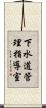 下水道管
理指導室